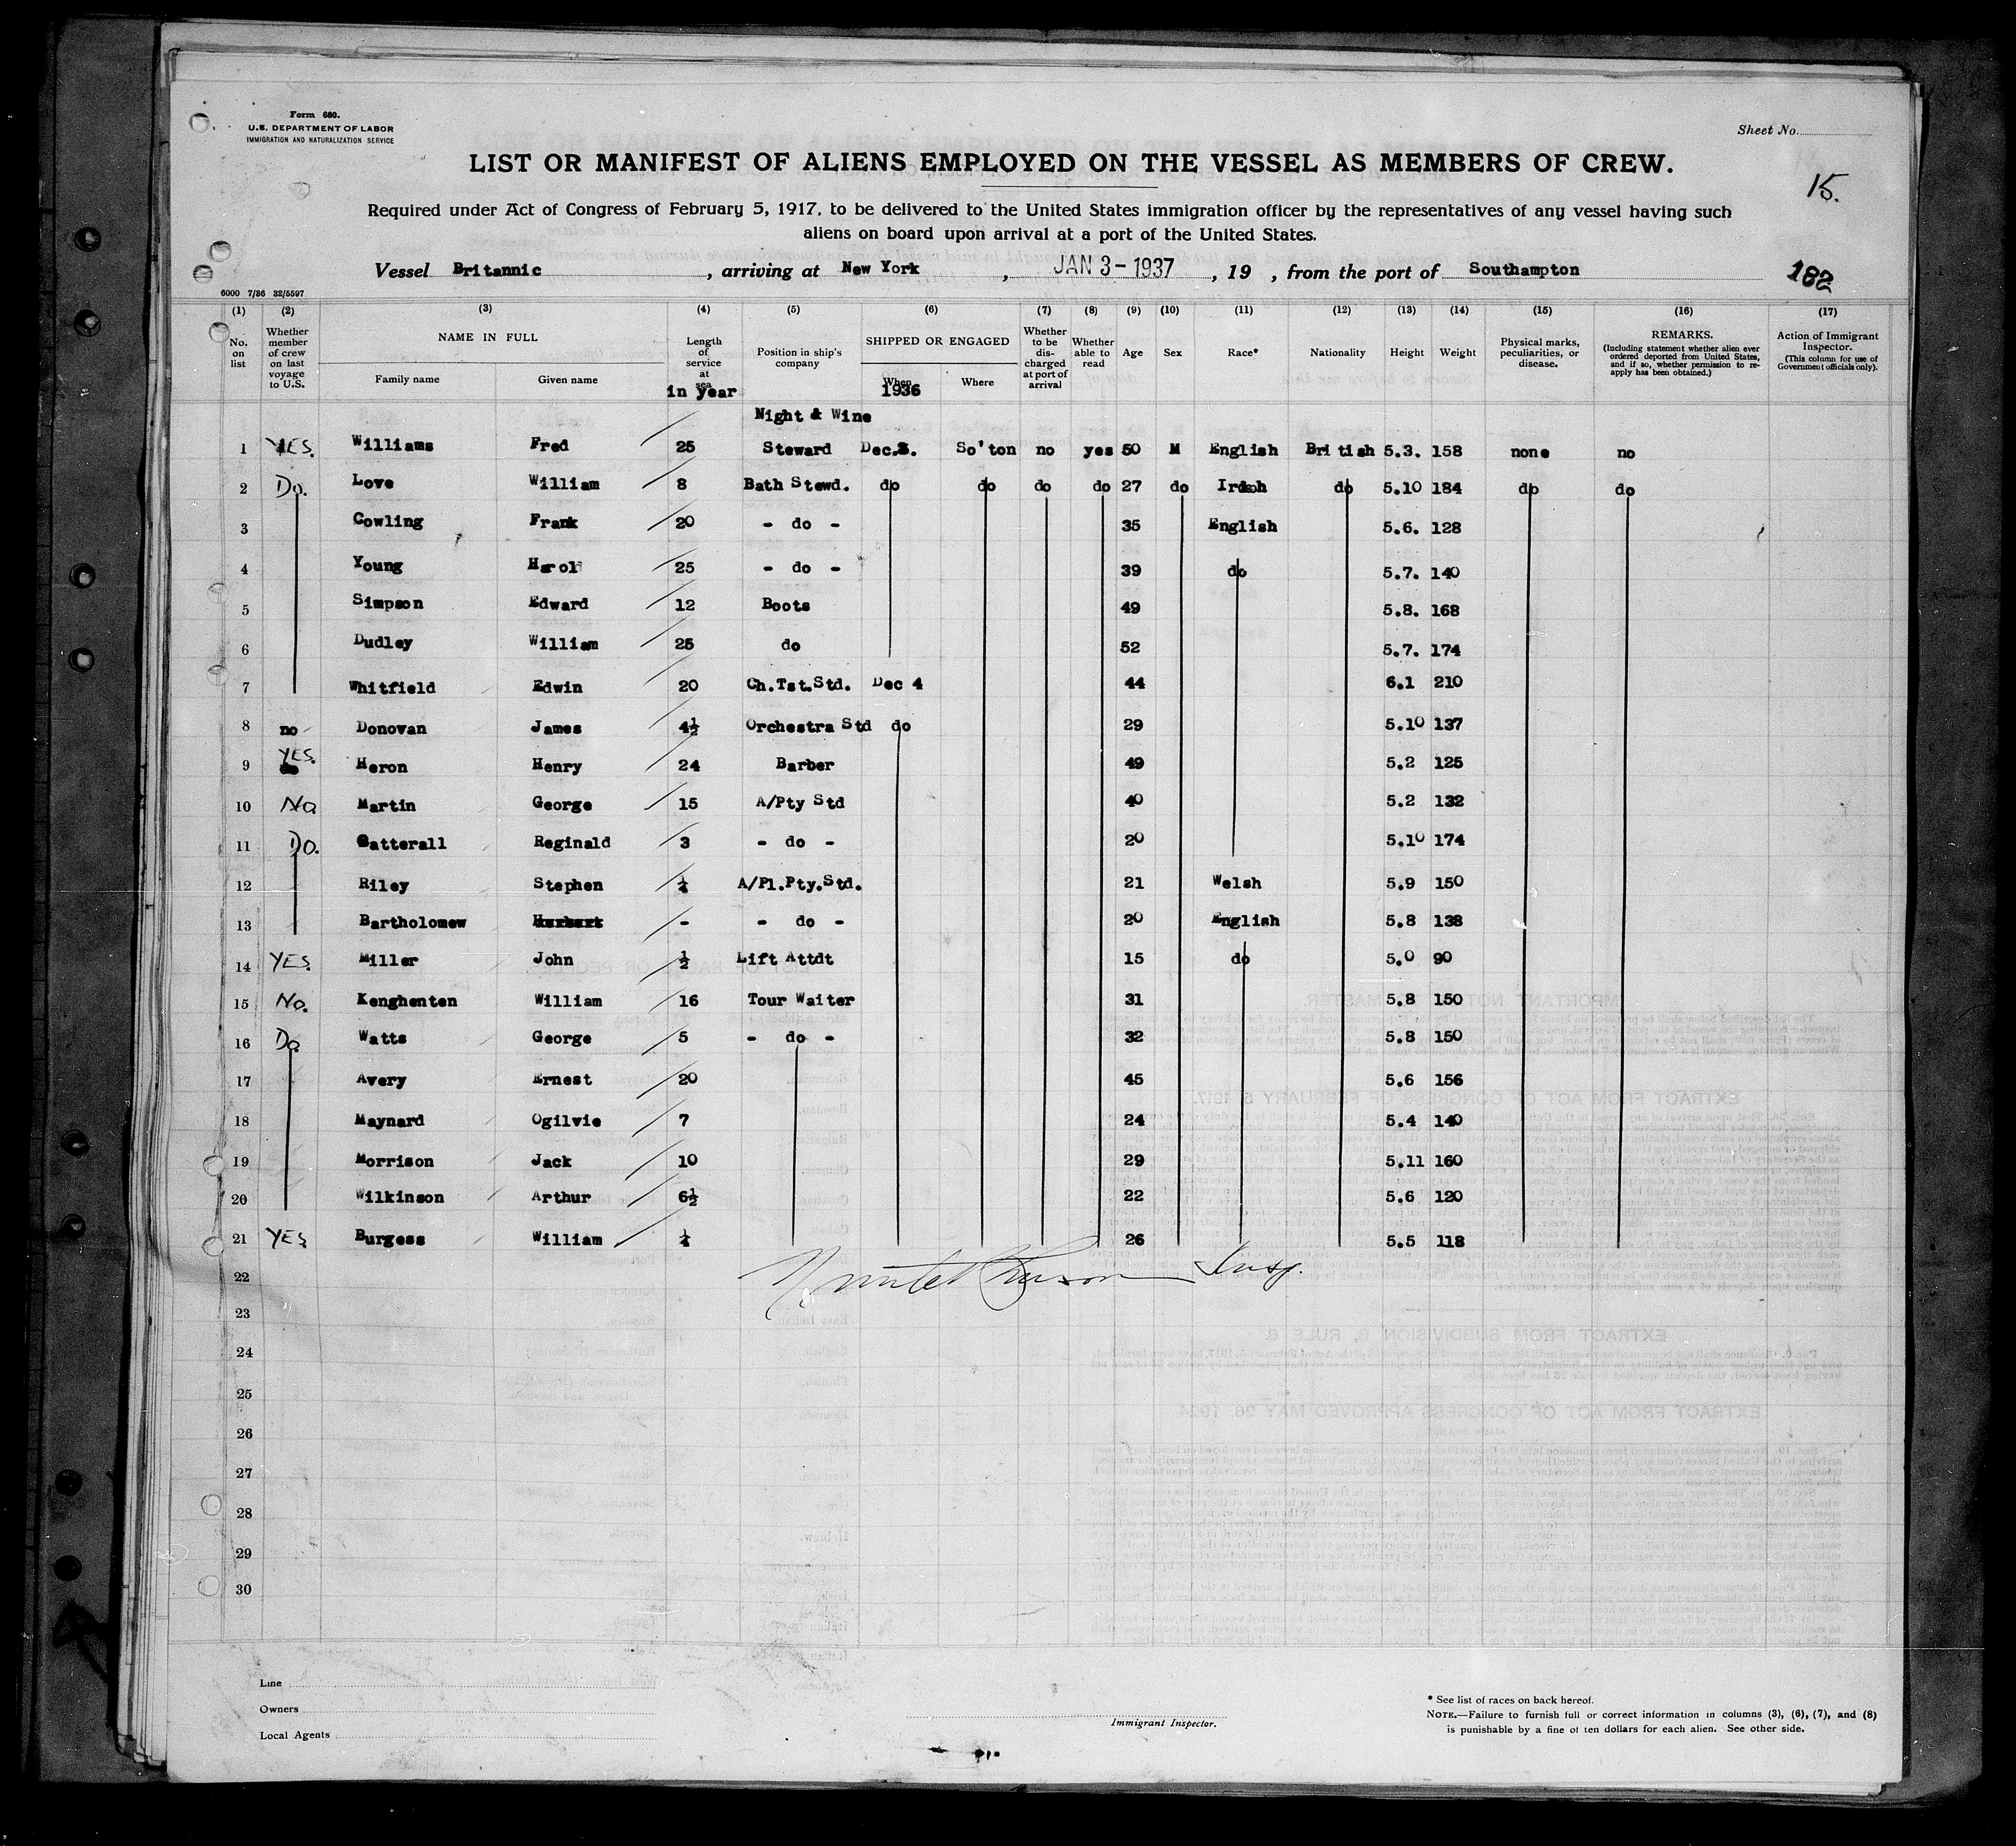 Form 680.
U.S. DEPARTMENT OF LABOR
IMMIGRATION AND NATURALIZATION SERVICE
Sheet No.
LIST OR MANIFEST OF ALIENS EMPLOYED ON THE VESSEL AS MEMBERS OF CREW.
15.
Required under Act of Congress of February 5, 1917, to be delivered to the United States immigration officer by the representatives of any vessel having such
aliens on board upon arrival at a port of the United States.
Vessel Britannic, arriving at New York, JAN 3 - 1937, 19 , from the port of Southampton
182
6000 7/36 32/5597
(1) (2) (3) (4) (5) (6) (7) (8) (9) (10) (11) (12) (13) (14) (15) (16) (17)
No. on list
Whether member of crew on last voyage to U.S.
NAME IN FULL
Family name
Given name
Length of service at sea
in year
Position in ship's company
SHIPPED OR ENGAGED
When
1936
Where
Whether to be discharged at port of arrival
Whether able to read
Age
Sex
Race*
Nationality
Height
Weight
Physical marks, peculiarities, or disease.
REMARKS.
(Including statement whether alien ever ordered deported from United States, and if so, whether permission to re-apply has been obtained.)
Action of Immigrant Inspector.
(This column for use of Government officials only).
Night & Wine
1 YES. Williams Fred 25 Steward Dec. So'ton no yes 50 M English British 5.3. 158 none no
2 Do. Love William 8 Bath Stewd. do do do do 27 do do 5.10 184 do do
3 Cowling Frank 20 - do - 35 English 5.6. 128
4 Young Harol 25 - do - 39 do 5.7. 140
5 Simpson Edward 12 Boots 49 5.8. 168
6 Dudley William 25 do 52 5.7. 174
7 Whitfield Edwin 20 Ch.Tst.Std. Dec 4 44 6.1 210
8 no Donovan James 4½ Orchestra Std do 29 5.10 137
9 YES. Heron Henry 24 Barber 49 5.2 125
10 No. Martin George 15 A/Pty Std 40 5.2 132
11 Do. Catterall Reginald 3 - do - 20 5.10 174
12 Riley Stephen ¼ A/Pl.Pty.Std. 21 Welsh 5.9 150
13 Bartholomew - - do - 20 English 5.8 138
14 YES. Miller John ½ Lift Attdt 15 do 5.0 90
15 No. Kenghenten William 16 Tour Waiter 31 5.8 150
16 Do Watts George 5 - do - 32 5.8 150
17 Avery Ernest 20 45 5.6 156
18 Maynard Ogilvie 7 24 5.4 140
19 Morrison Jack 10 29 5.11 160
20 Wilkinson Arthur 6½ 22 5.6 120
21 YES. Burgess William ¼ 26 5.5 118
22 Insp.
23
24
25
26
27
28
29
30
Line
Owners
Local Agents
Immigrant Inspector.
* See list of races on back hereof.
NOTE.—Failure to furnish full or correct information in columns (3), (6), (7), and (8)
is punishable by a fine of ten dollars for each alien. See other side.